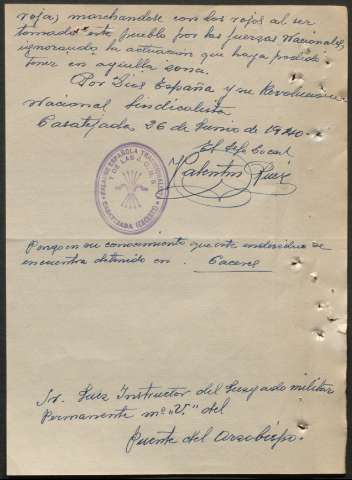 roja, marchandose con los rojos al ser
tomado este pueblo por las fuerzas Nacionales,
ignorando la actuacion que haya podido
tener en aquella zona.
Por Dios España y su Revolucion
Nacional Sindicalista.
Casatejada 26 de Junio de 1940.
El Jefe Local
Valentin Ruiz
FALANGE ESPAÑOLA TRADICIONALISTA
Y DE LAS J.O.N.S
CASATEJADA (CACERES)
Pongo en su conocimiento que este individuo se
encuentra detenido en Caceres
Sr. Juez Instructor del Juzgado militar
Permanente nº "V." del
Puente del Arzobispo.